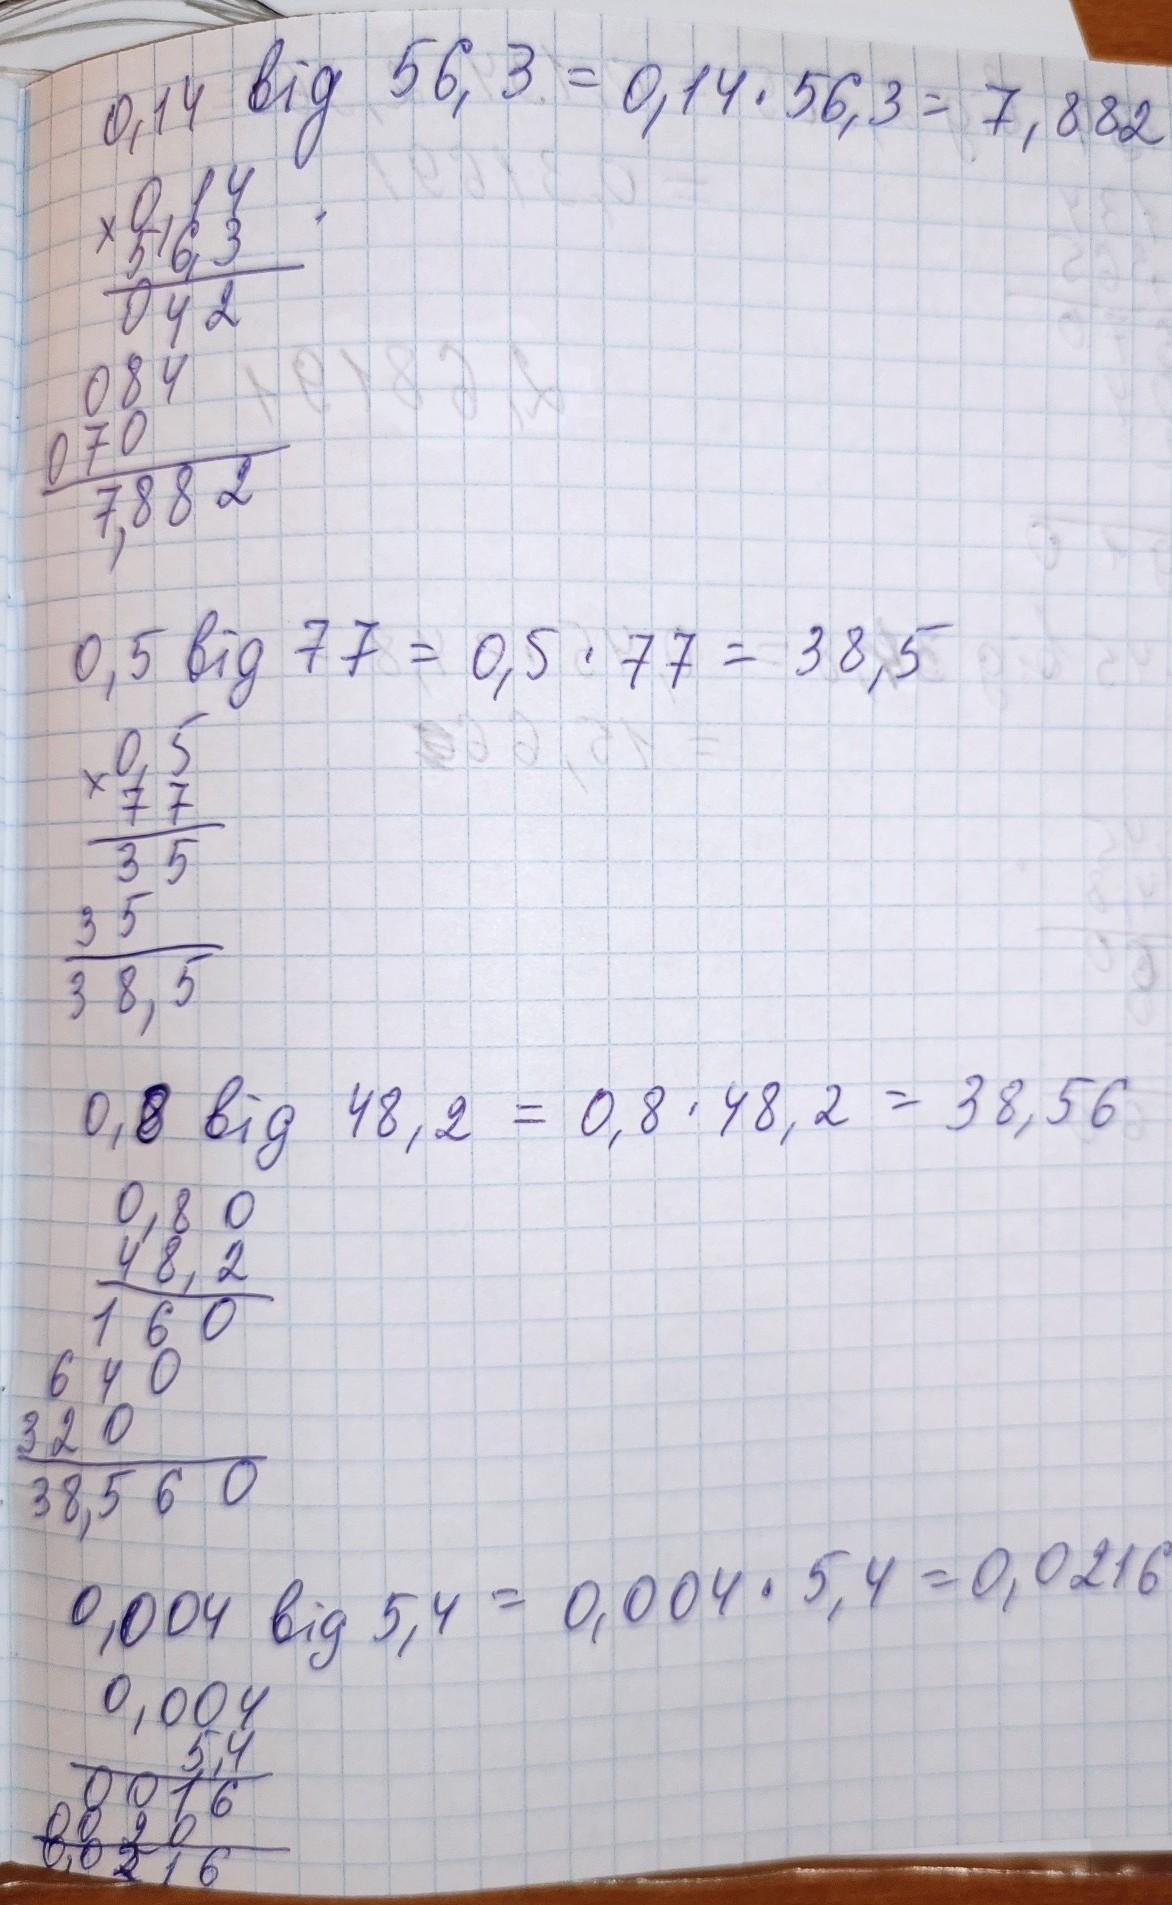 0,14 від 56,3 = 0,14 · 56,3 = 7,882
× 0,14
56,3
042
084
070
7,882
0,5 від 77 = 0,5 · 77 = 38,5
× 0,5
77
35
35
38,5
0,8 від 48,2 = 0,8 · 48,2 = 38,56
0,80
48,2
160
640
320
38,560
0,004 від 5,4 = 0,004 · 5,4 = 0,0216
0,004
5,4
0016
0020
0,0216